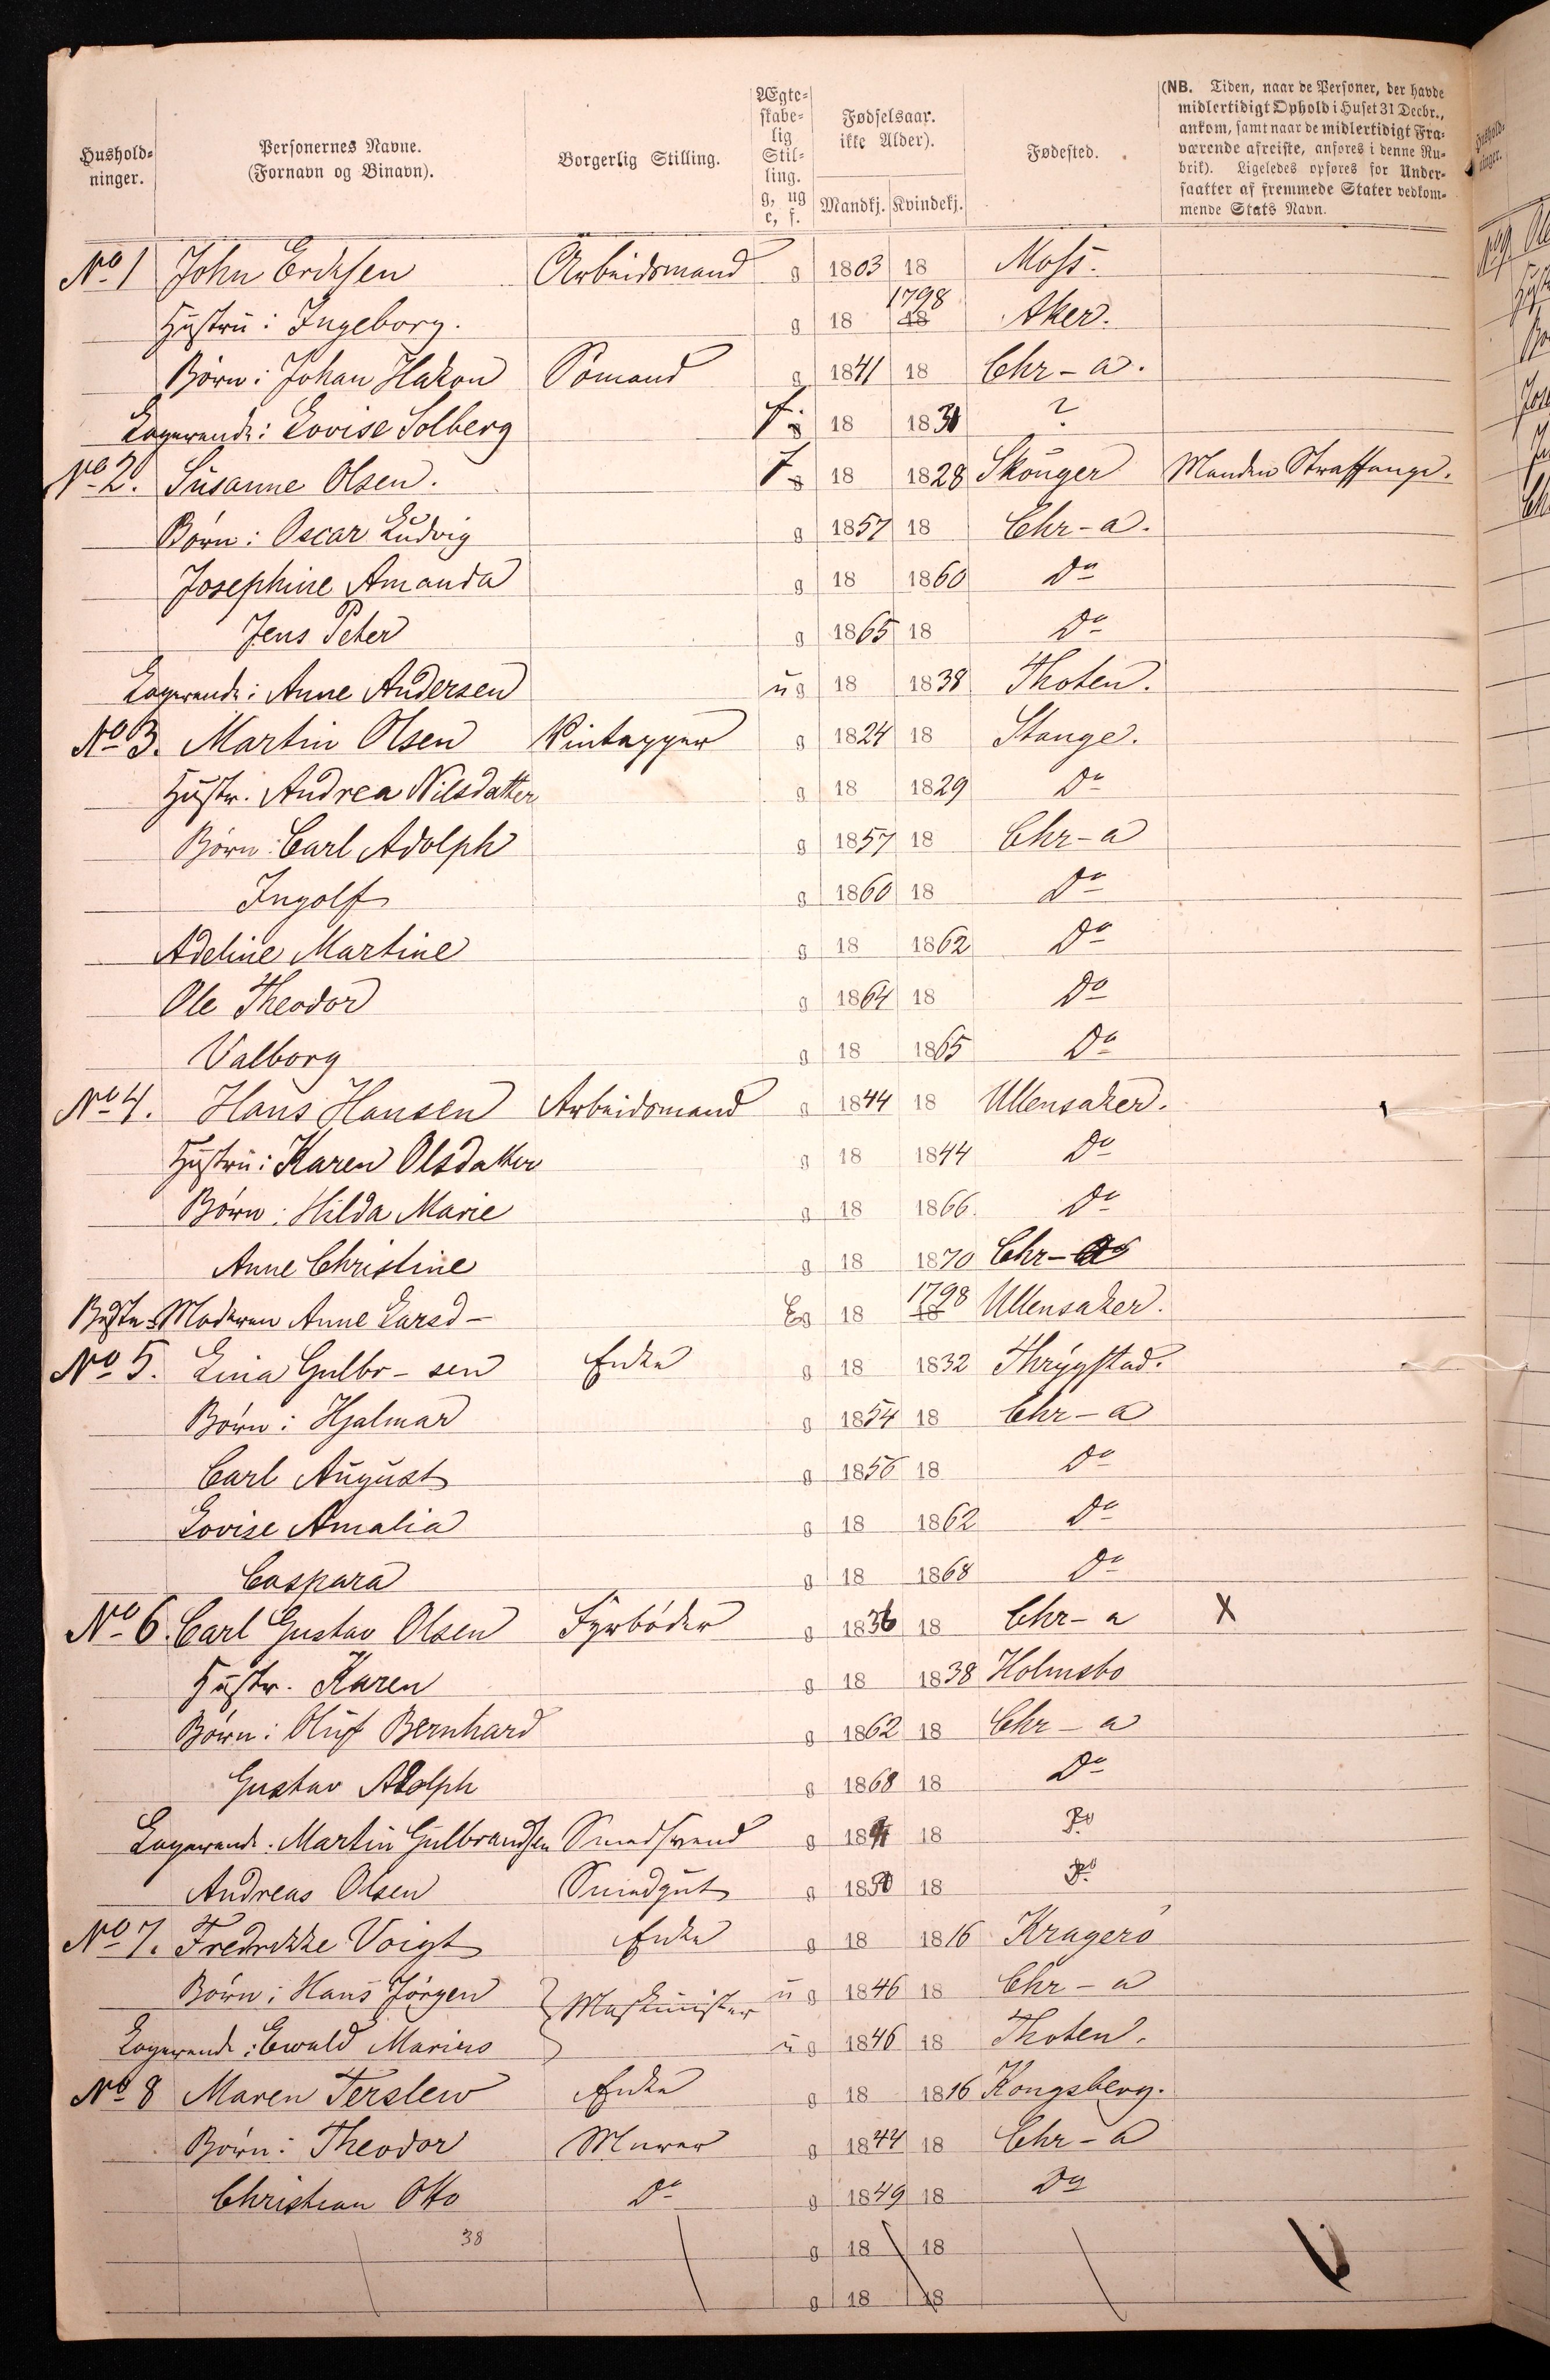 Hushold-
ninger.
Personernes Navne.
(Fornavn og Binavn).
Borgerlig Stilling.
Ægte-
skabe-
lig
Stil-
ling.
g, ug
e, f.
Fødselsaar.
ikke Alder).
Mandkj. Kvindekj.
Fødested.
(NB. Tiden, naar de Personer, der havde
midlertidigt Ophold i Huset 31 Decbr.,
ankom, samt naar de midlertidigt Fra-
værende afreiste, anføres i denne Ru-
brik). Ligeledes opføres for Under-
saatter af fremmede Stater vedkom-
mende Stats Navn.
No 1 John Erichsen Arbeidsmand g 1803 18 Moss.
Hustru: Ingeborg. g 18 1798 18 Aker.
Børn: Johan Hakon Sømand g 1841 18 Chr-a.
Logerende: Lovise Solberg f. g 18 183 ?
No 2. Susanne Olsen. f g 18 1828 Skouger Manden Straffange.
Børn: Oscar Ludvig g 1857 18 Chr-a.
Josephine Amanda g 18 1860 Do
Jens Peter g 1865 18 Do
Logerende: Anne Andersen ug 18 1838 Thoten.
No 3. Martin Olsen Vintapper g 1824 18 Stange.
Hustr. Andrea Nilsdatter g 18 1829 Do
Børn: Carl Adolph g 1857 18 Chr-a
Ingolf g 1860 18 Do
Adeline Martine g 18 1862 Do
Ole Theodor g 1864 18 Do
Valborg g 18 1865 Do
No 4. Hans Hansen Arbeidsmand g 1844 18 Ullensaker.
Hustru: Karen Olsdatter g 18 1844 Do
Børn: Hilda Marie g 18 1866. Do
Anne Christine g 18 1870 Chr-a
Moderen Anne Larsd- Eg 18 1798 18 Ullensaker.
No 5. Lina Gulbr-sen Enke g 18 1832 Thrygstad.
Børn: Hjalmar g 1854 18 Chr-a
Carl August g 1856 18 Do
Lovise Amalia g 18 1862 Do
Caspara g 18 1868 Do
No 6. Carl Gustav Olsen Fyrbøder g 1836 18 Chr-a X
Hustr. Karen g 18 1838 Holmsbo
Børn: Oluf Bernhard g 1862 18 Chr-a
Gustav Adolph g 1868 18 Do
Logerende. Martin Gulbrandsen Smedsvend g 18 18 Do
Andreas Olsen Smedgut g 1850 18 Do
No 7. Fredrikke Voigt Enke g 18 1816 Kragerø
Børn: Hans Jørgen Maskinister ug 1846 18 Chr-a
Logerende: Ewald Marius ug 1846 18 Thoten.
No 8 Maren Terslew Enke g 18 1816 Kongsberg.
Børn: Theodor Murer g 1844 18 Chr-a
Christian Otto Do g 1849 18 Do
38 g 18 18
g 18 18